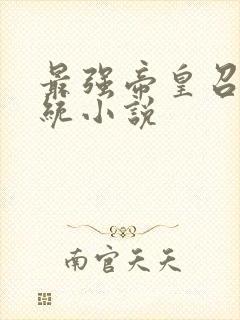 最强帝皇召
统小说
南宫天天